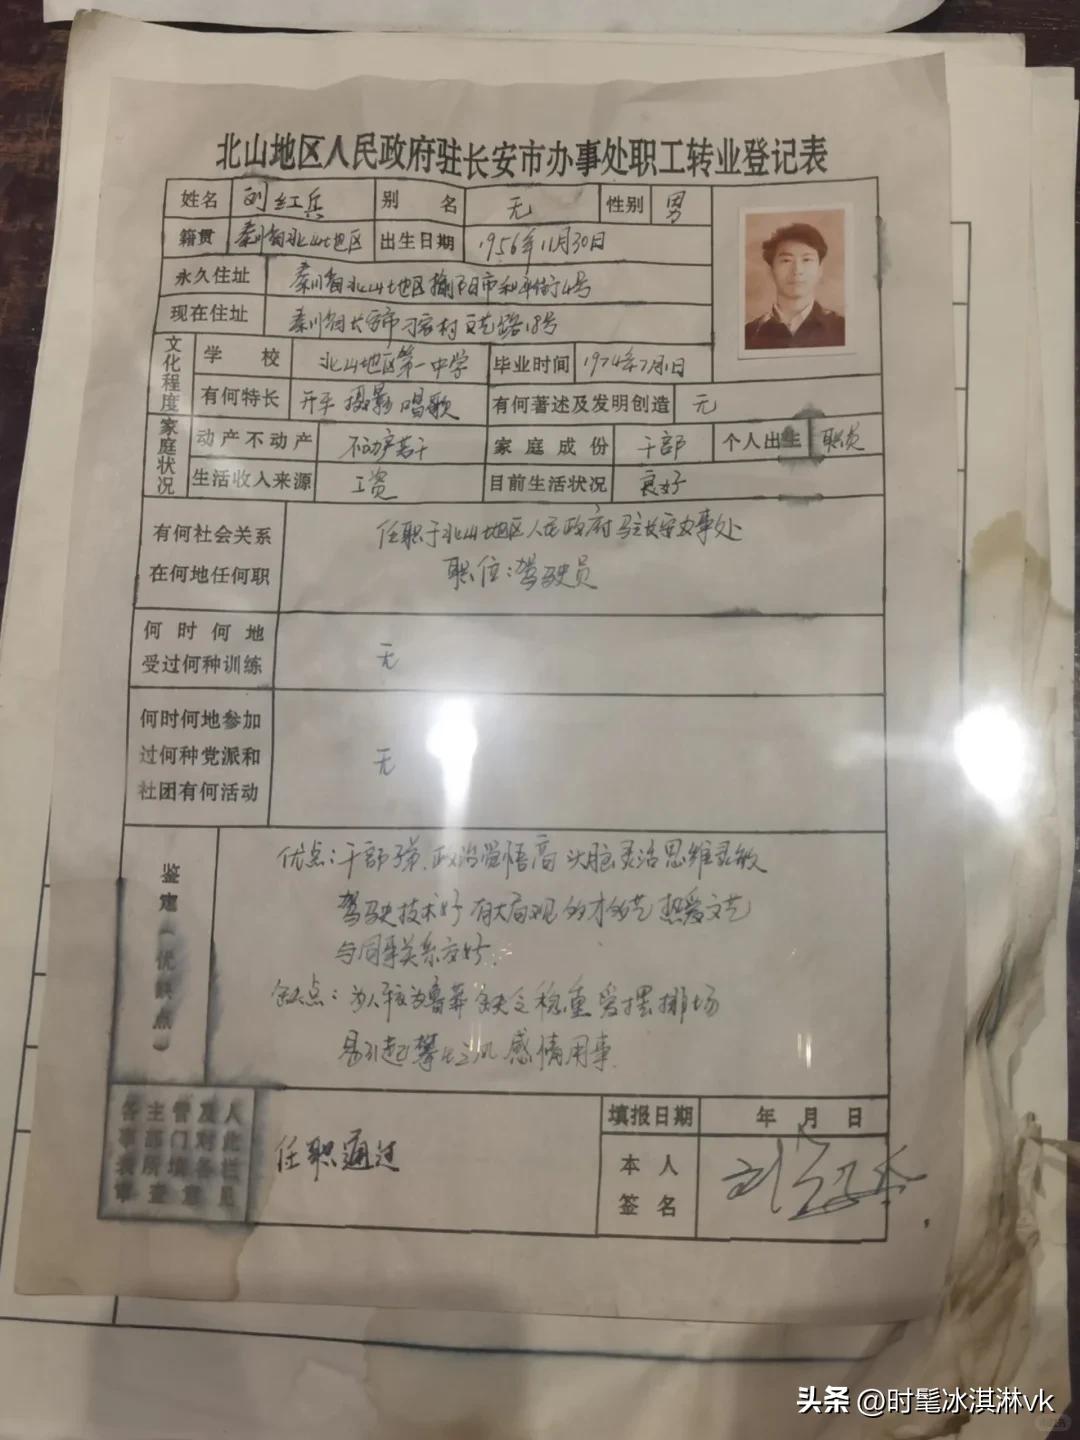 北山地区人民政府驻长安市办事处职工转业登记表
姓名 刘红兵 别名 无 性别 男
籍贯 秦川省北山地区 出生日期 1956年11月30日
永久住址 秦川省北山地区榆阳市和平街4号
现在住址 秦川省长安市刁家村文艺路18号
文化程度 学校 北山地区第一中学 毕业时间 1974年7月1日
有何特长 开车 摄影 唱歌 有何著述及发明创造 无
家庭状况 动产不动产 不动产若干 家庭成份 干部 个人出生 职员
生活收入来源 工资 目前生活状况 良好
有何社会关系
在何地任何职
任职于北山地区人民政府驻长安办事处
职位:驾驶员
何时何地
受过何种训练
无
何时何地参加
过何种党派和
社团有何活动
无
鉴定(优缺点)
优点:干部子弟.政治觉悟高 头脑灵活思维灵敏
驾驶技术好 有大局观 多才多艺 热爱文艺
与同事关系交好.
缺点:为人较为鲁莽 缺乏稳重 爱摆排场
易引起攀比之风 感情用事
各主管及人
事部门对此
表所填各栏
审查意见
任职通过
填报日期 年 月 日
本人
签名
刘红兵
头条 @时髦冰淇淋vk